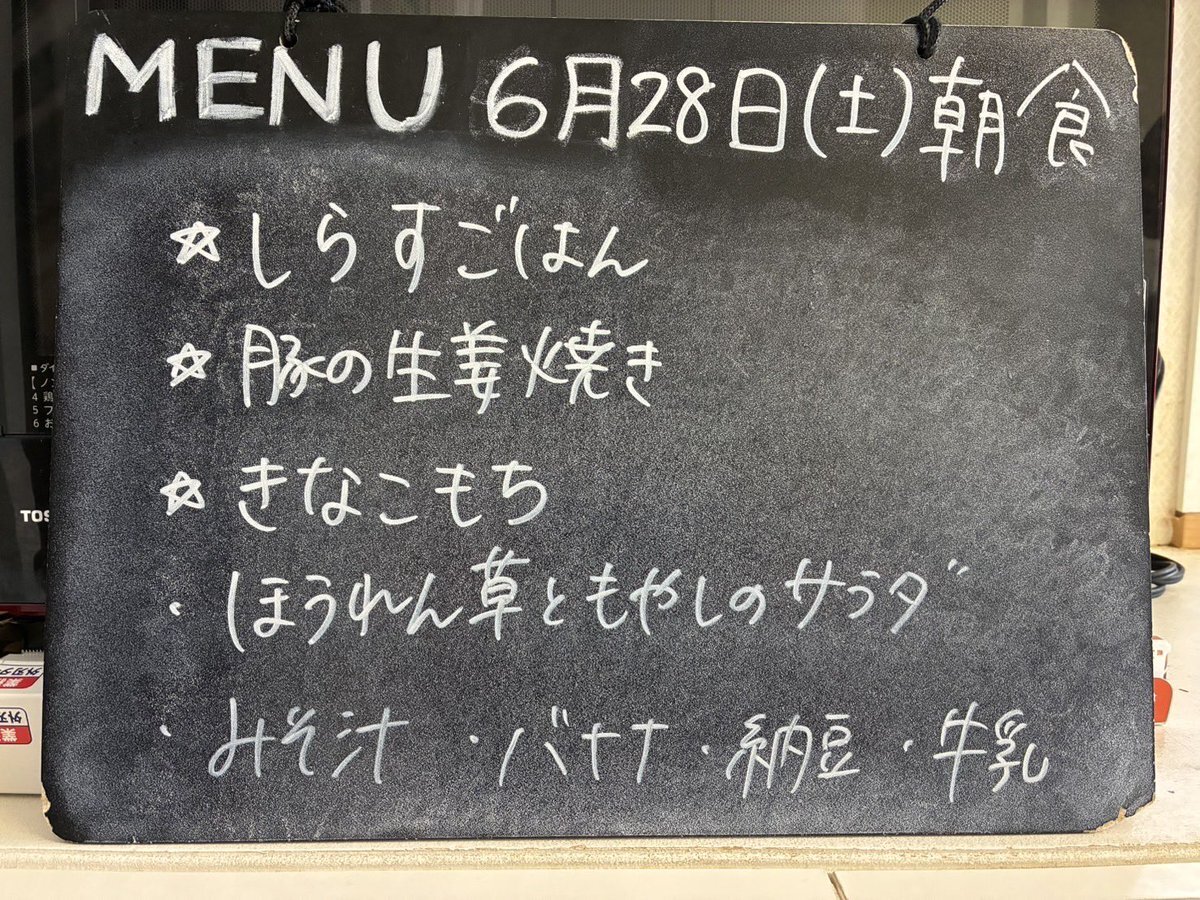 MENU 6月28日(土)朝食
☆しらすごはん
☆豚の生姜焼き
☆きなこもち
・ほうれん草ともやしのサラダ
・みそ汁 ・バナナ ・納豆 ・牛乳
TOS